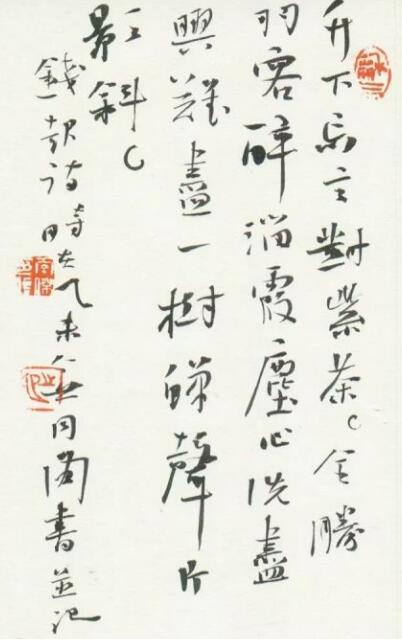 竹下忘言對紫茶。全勝
羽客醉流霞塵心洗盡
興難盡一樹蟬聲片
影斜。
錢起詩時在乙未年同書並記